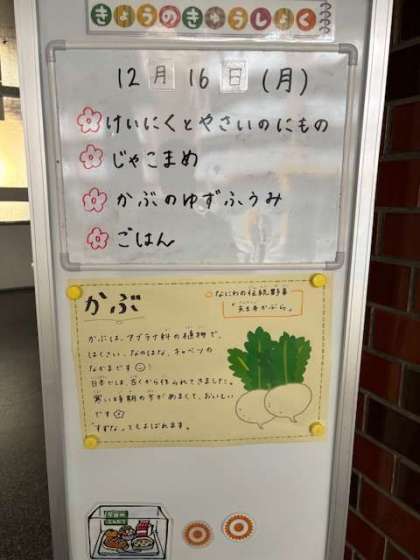 きょうのきゅうしょく
12月16日(月)
けいにくとやさいのにもの
じゃこまめ
かぶのゆずふうみ
ごはん
かぶ
なにわの伝統野菜
「天王寺かぶら」
かぶは、アブラナ科の植物で、
はくさい、なのはな、キャベツの
なかまです
日本では、古くから作られてきました。
寒い時期の方があまくて、おいしい
です
「すずな」ともよばれます。